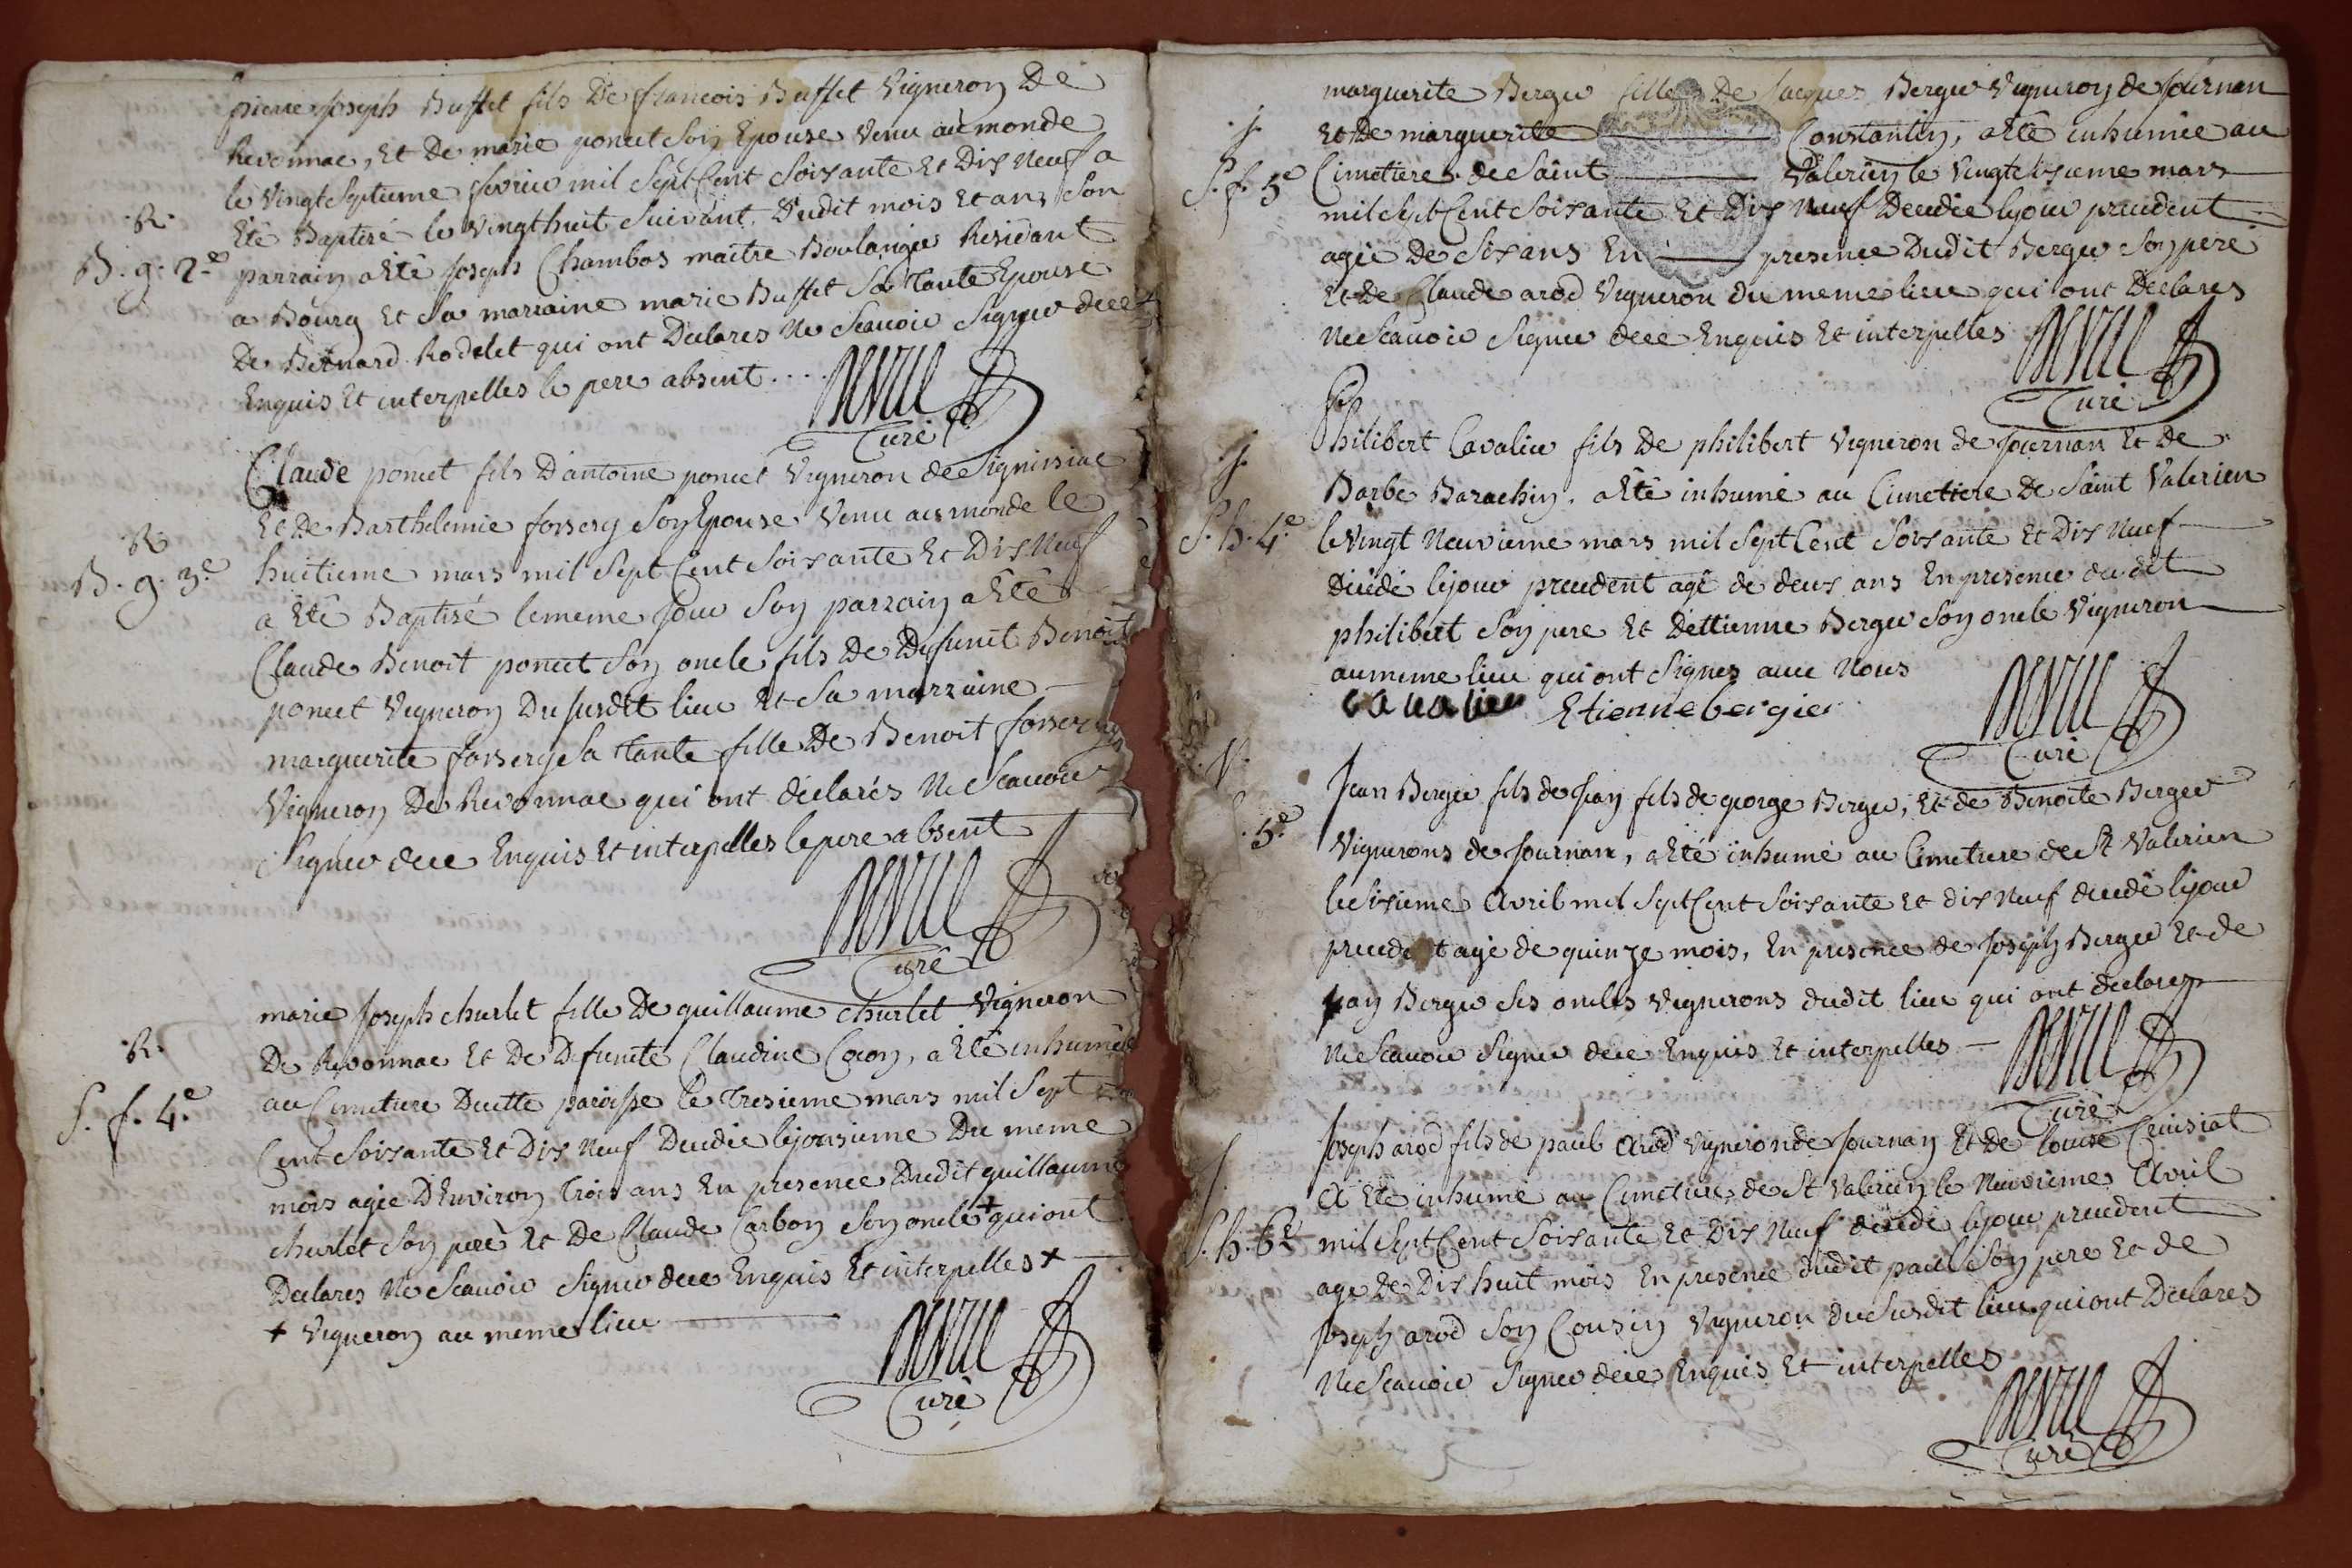 pierre Joseph Buffet fils De francois Buffet Vigneron De
Revonnac, Et De marie poncet Son Epouse Venu au monde
le Vingt Septieme fevrier mil Sept Cent Soixante Et Dix Neuf a
.R.
Eté Baptisé le vingt huit Suivant Dudit mois Et an, Son
B. g. 2.e
parrain a Eté Joseph Chambos maitre Boulanger Residant
a Bourg Et Sa marraine marie Buffet Sa Tante Epouse
De Bernard Rodelet qui ont Declares Ne Scavoir Signer dece
Enquis Et interpelles le pere absent....
nevue
Curé
Claude poncet fils D'antoine poncet Vigneron de Signissiac
Et De Barthelemie forsery Son Epouse Venu au monde le
.R.
B. g. 3.e
huitieme mars mil Sept Cent Soixante Et Dix Neuf
a Eté Baptisé le meme Jour Son parrain a Eté
Claude Benoit poncet Son oncle fils De Defunct Benoit
poncet Vigneron Du Susdit lieu Et Sa marraine
marguerite forsery Sa Tante fille De Benoit forsery
Vigneron De Revonnac qui ont déclarés Ne Scavoir
Signer dece Enquis Et interpelles le pere absent
nevue
Curé
marie Joseph churlet fille De guillaume churlet Vigneron
.R.
De Revonnac Et De Defuncte Claudine Coron, a Eté inhumée
S. f. 4.e
au Cimetiere Dicette paroisse le Tresieme mars mil Sept
Cent Soixante Et Dix Neuf Decedée le Jonsieme Du meme
mois agée D'Environ Trois ans En presence Dudit guillaume
churlet Son pere Et De Claude Carbon Son oncle + qui ont
Declares Ne Scavoir Signer dece Enquis Et interpelles +
+ Vigneron au meme lieu
nevue
Curé
marguerite Berger fille De Jacques Berger Vigneron de Journan
.J.
Et De marguerite Constantin, a Eté inhumée au
S. f. 5.e
Cimetiere de Saint Valerien le Vingt Sisieme mars
mil Sept Cent Soixante Et Dix Neuf Decedée le Jour precedent
agée De Six ans En presence Dudit Berger Son pere
Et De Claude arod Vigneron du meme lieu qui ont Declares
Ne Scavoir Signer dece Enquis Et interpelles
nevue
Curé
Philibert Cavalier fils De philibert Vigneron de Journan Et De
.J.
Barbe Barachin. a Eté inhumé au Cimetiere De Saint Valerien
S. h. 4.e
le Vingt Neuvieme mars mil Sept Cent Soixante Et Dix Neuf
Décédé le Jour precedent agé de deux ans En presence dudit
philibert Son pere Et D'ettienne Berger Son oncle Vigneron
au meme lieu qui ont Signés avec Nous
cavalier Etienne bergier
nevue
Curé
Jean Berger fils de Jean fils de george Berger, Et de Benoite Berger
5.e
Vignerons de Journan, a Eté inhumé au Cimetiere de St Valerien
le Sisieme Avril mil Sept Cent Soixante Et dix Neuf decedé le Jour
precedent agé de quinze mois, En presence de Joseph Berger Et de
Jean Berger Ses oncles Vignerons dudit lieu qui ont declares
Ne Scavoir Signer dece Enquis Et interpelles
nevue
Curé
Joseph arod fils de paul Arod Vigneron de Journan Et de louise Cuisiat
A Eté inhumé au Cimetiere de St Valerien le Neuvieme Avril
S. h. 6.e
mil Sept Cent Soixante Et Dix Neuf décédé le Jour precedent
agé De Dix huit mois En presence dudit paul Son pere Et de
Joseph arod Son Cousin Vigneron du Susdit lieu qui ont Declares
Ne Scavoir Signer dece Enquis Et interpelles
nevue
Curé